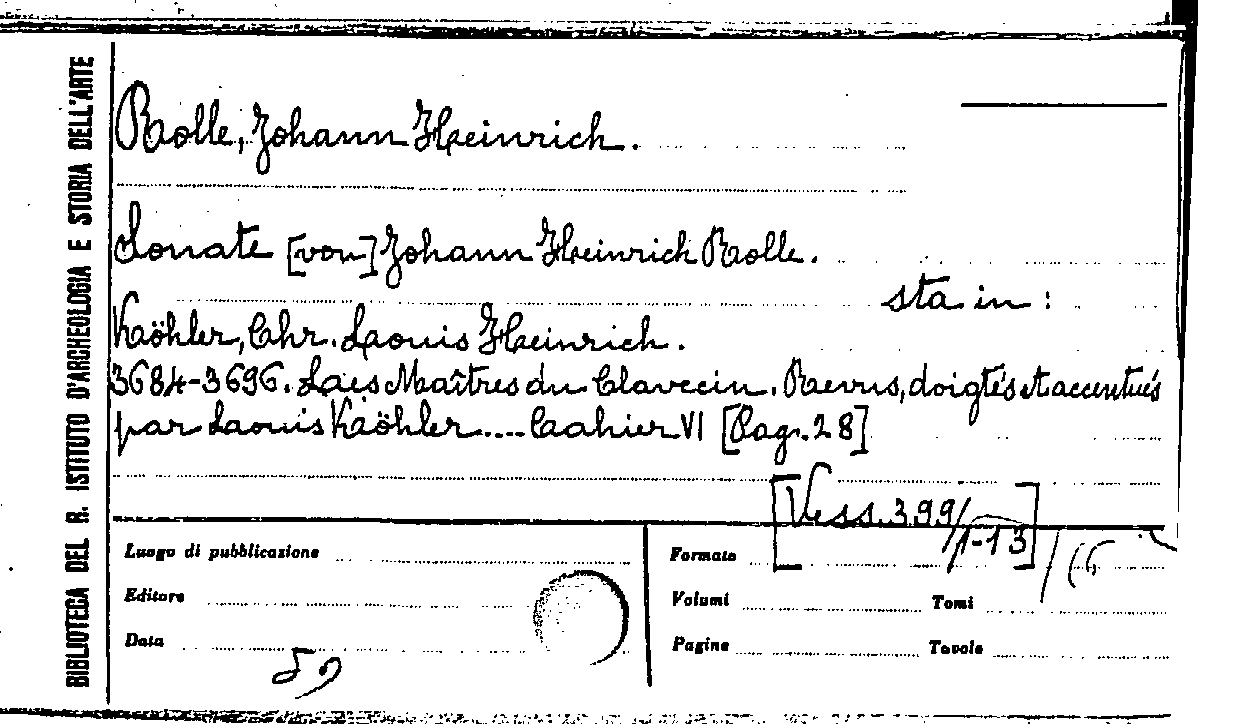 BIBLIOTECA DEL R. ISTITUTO D'ARCHEOLOGIA E STORIA DELL'ARTE
Rolle, Johann Heinrich.
Sonate [von] Johann Heinrich Rolle.
sta in:
Köhler, Chr. Louis Heinrich.
3684-3696. Les Maîtres du Clavecin. Revus, doigtés et accentués
par Louis Köhler.... Cahier VI [Pag. 28]
[Vess. 399/1-13]
Luogo di pubblicazione
Editore
Data
Formato
Volumi Tomi
Pagine Tavole